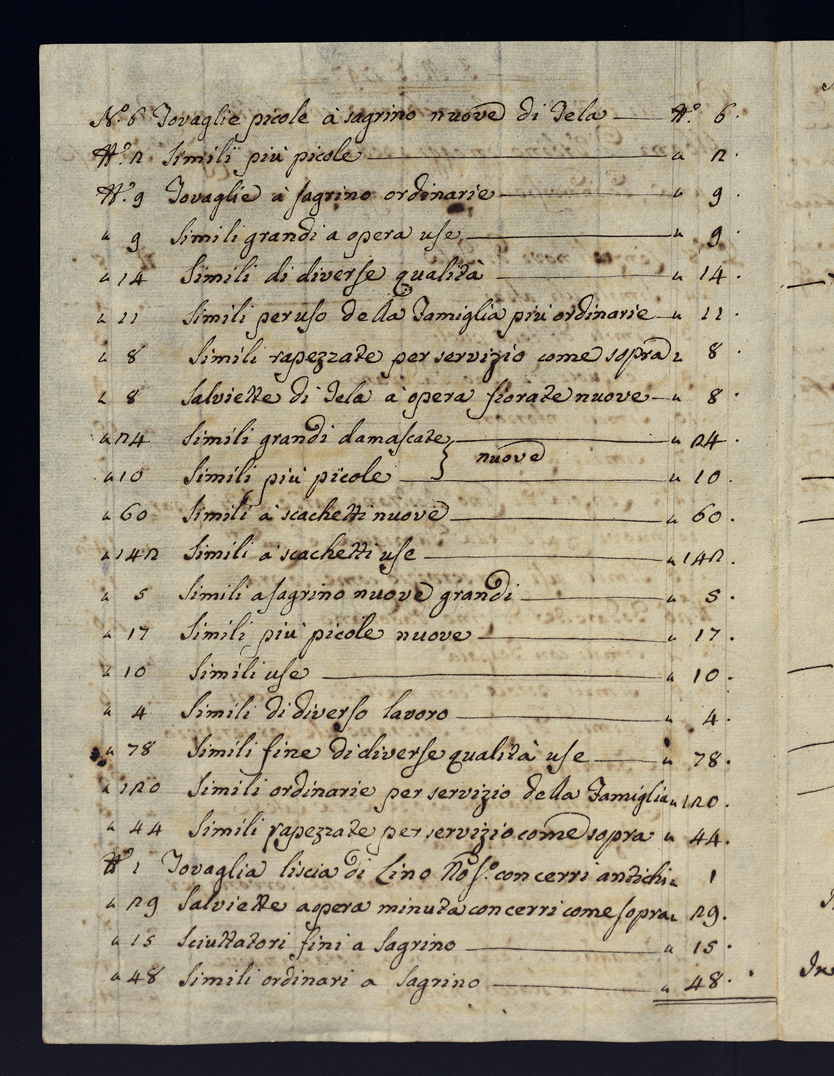 N.º 6 Tovaglie picole à sagrino nuove di Tela N.º 6.
N.º 2 Simili più picole " 2.
N.º 9 Tovaglie à sagrino ordinarie " 9.
" 9 Simili grandi a opera use " 9.
" 14 Simili di diverse qualità " 14.
" 11 Simili per uso della Famiglia più ordinarie " 11.
" 8 Simili rapezzate per servizio come sopra " 8.
" 8 Salviette di Tela à opera fiorate nuove " 8.
" 24 Simili grandi damascate " 24.
nuove
" 10 Simili più picole " 10.
" 60 Simili à scachetti nuove " 60.
" 142 Simili à scachetti use " 142.
" 5 Simili a sagrino nuove grandi " 5.
" 17 Simili più picole nuove " 17.
" 10 Simili use " 10.
" 4 Simili di diverso lavoro " 4.
" 78 Simili fine di diverse qualità use " 78.
" 120 Simili ordinarie per servizio della Famiglia " 120.
" 44 Simili rapezzate per servizio come sopra " 44.
N.º 1 Tovaglia liscia di Lino con cerri antichi " 1
" 29 Salviette a opera minuta con cerri come sopra " 29.
" 15 Sciuttatori fini a Sagrino " 15.
" 48 Simili ordinari a Sagrino " 48.